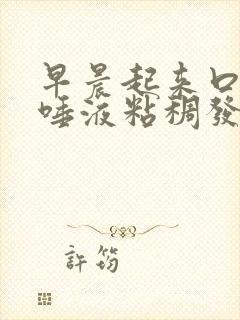 早晨起来口
唾液粘稠發
許筠